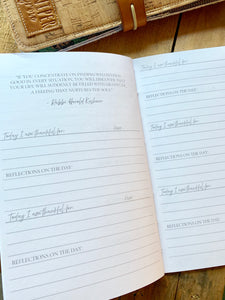 "IF YOU CONCENTRATE ON FINDING WHATEVER IS
GOOD IN EVERY SITUATION, YOU WILL DISCOVER THAT
YOUR LIFE WILL SUDDENLY BE FILLED WITH GRATITUDE,
A FEELING THAT NURTURES THE SOUL."
- Rabbi Harold Kushner
Today I am thankful for:
Date:
REFLECTIONS ON THE DAY:
Today I am thankful for:
Date:
REFLECTIONS ON THE DAY:
Today I am thankful for:
REFLECTIONS ON THE DAY:
Today I am thankful for:
REFLECTIONS ON THE DAY: